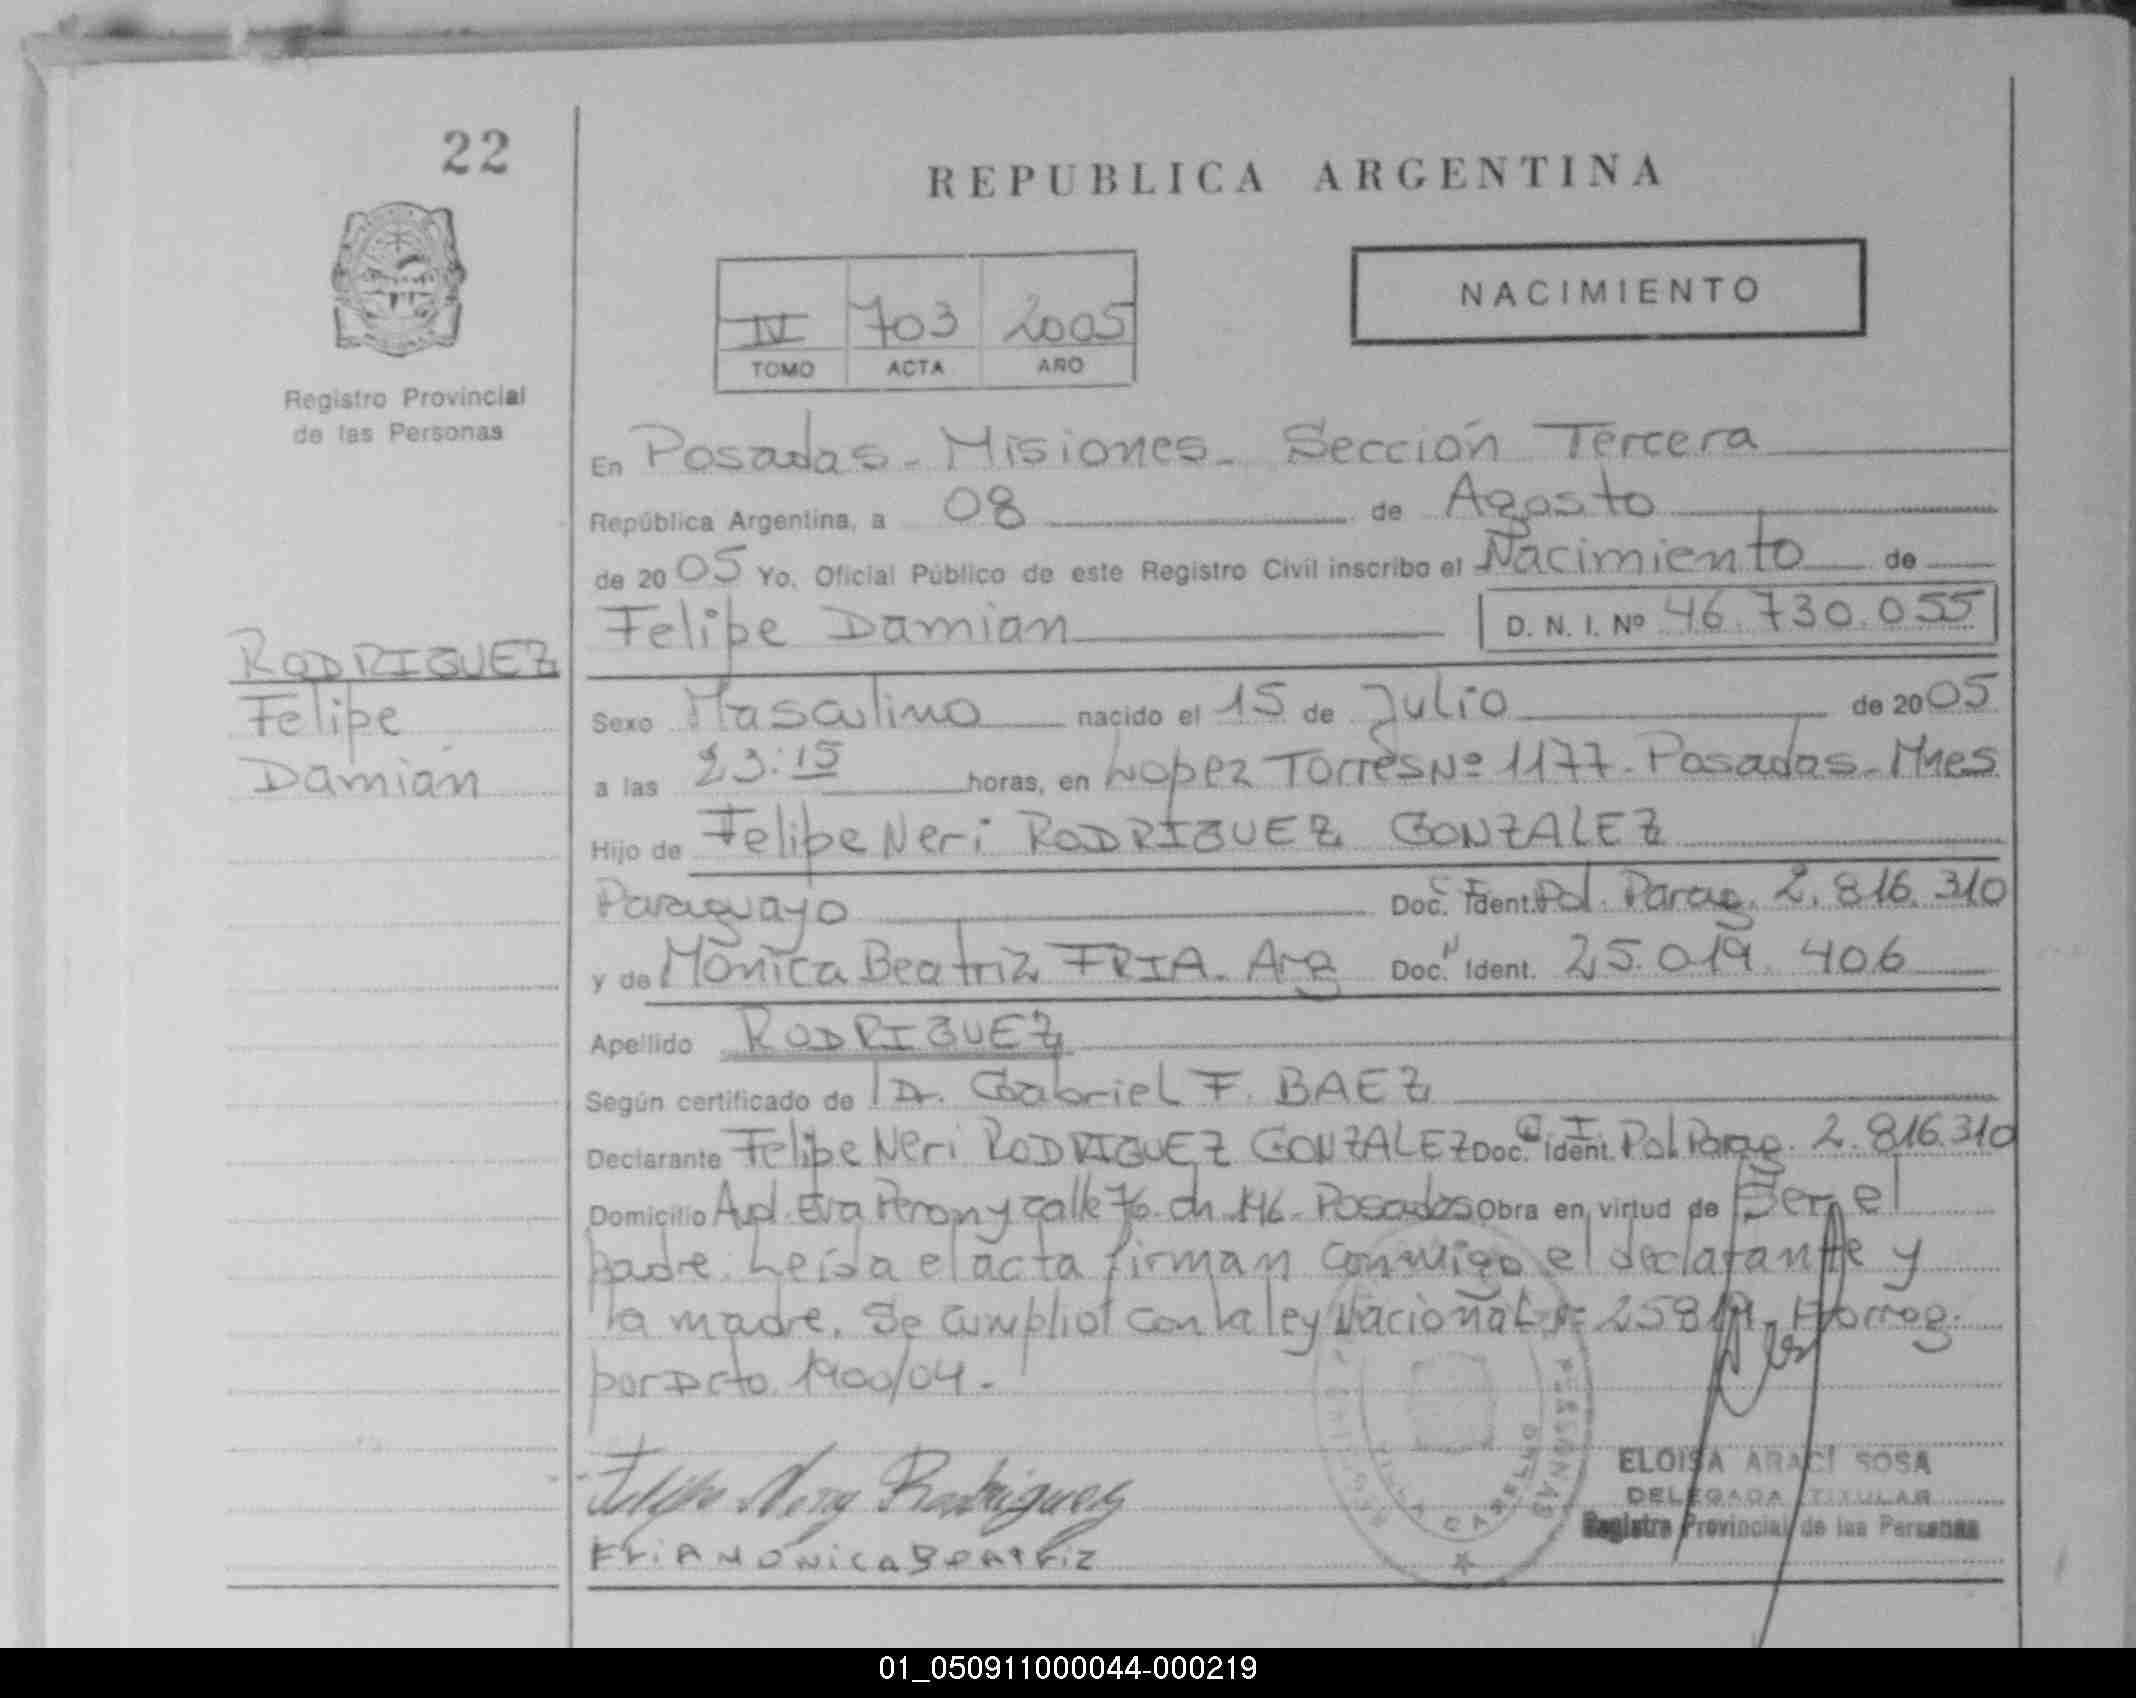 22
REPUBLICA ARGENTINA
NACIMIENTO
IV 703 2005
TOMO ACTA AÑO
Registro Provincial
de las Personas
En Posadas - Misiones - Sección Tercera
República Argentina, a 08 de Agosto
de 2005 Yo, Oficial Público de este Registro Civil inscribo el Nacimiento de
Felipe Damian D. N. I. Nº 46.730.055
RODRIGUEZ
Felipe
Damián
Sexo Masculino nacido el 15 de Julio de 2005
a las 23:15 horas, en Lopez Torres Nº 1177 - Posadas - Mnes
Hijo de Felipe Neri RODRIGUEZ GONZALEZ
Paraguayo Doc. Ident. C I Pol. Parag. 2.816.310
y de Mónica Beatriz FRIA - Arg Doc. Ident. 25.019.406
Apellido RODRIGUEZ
Según certificado de Dr. Gabriel F. BAEZ
Declarante Felipe Neri RODRIGUEZ GONZALEZ Doc. Ident. C I Pol Parag. 2.816.310
Domicilio Avd. Eva Peron y calle 76 ch 146 - Posadas Obra en virtud de Ser el
padre. Leída el acta firman conmigo el declarante y
la madre. Se cumplió con la ley Nacional Nº 25819 - Prorrog.
por Dcto 1900/04 -
Felipe Nery Rodriguez
FRIA MONICA BEATRIZ
ELOISA ARACI SOSA
DELEGADA TITULAR
Registro Provincial de las Personas
01_050911000044-000219